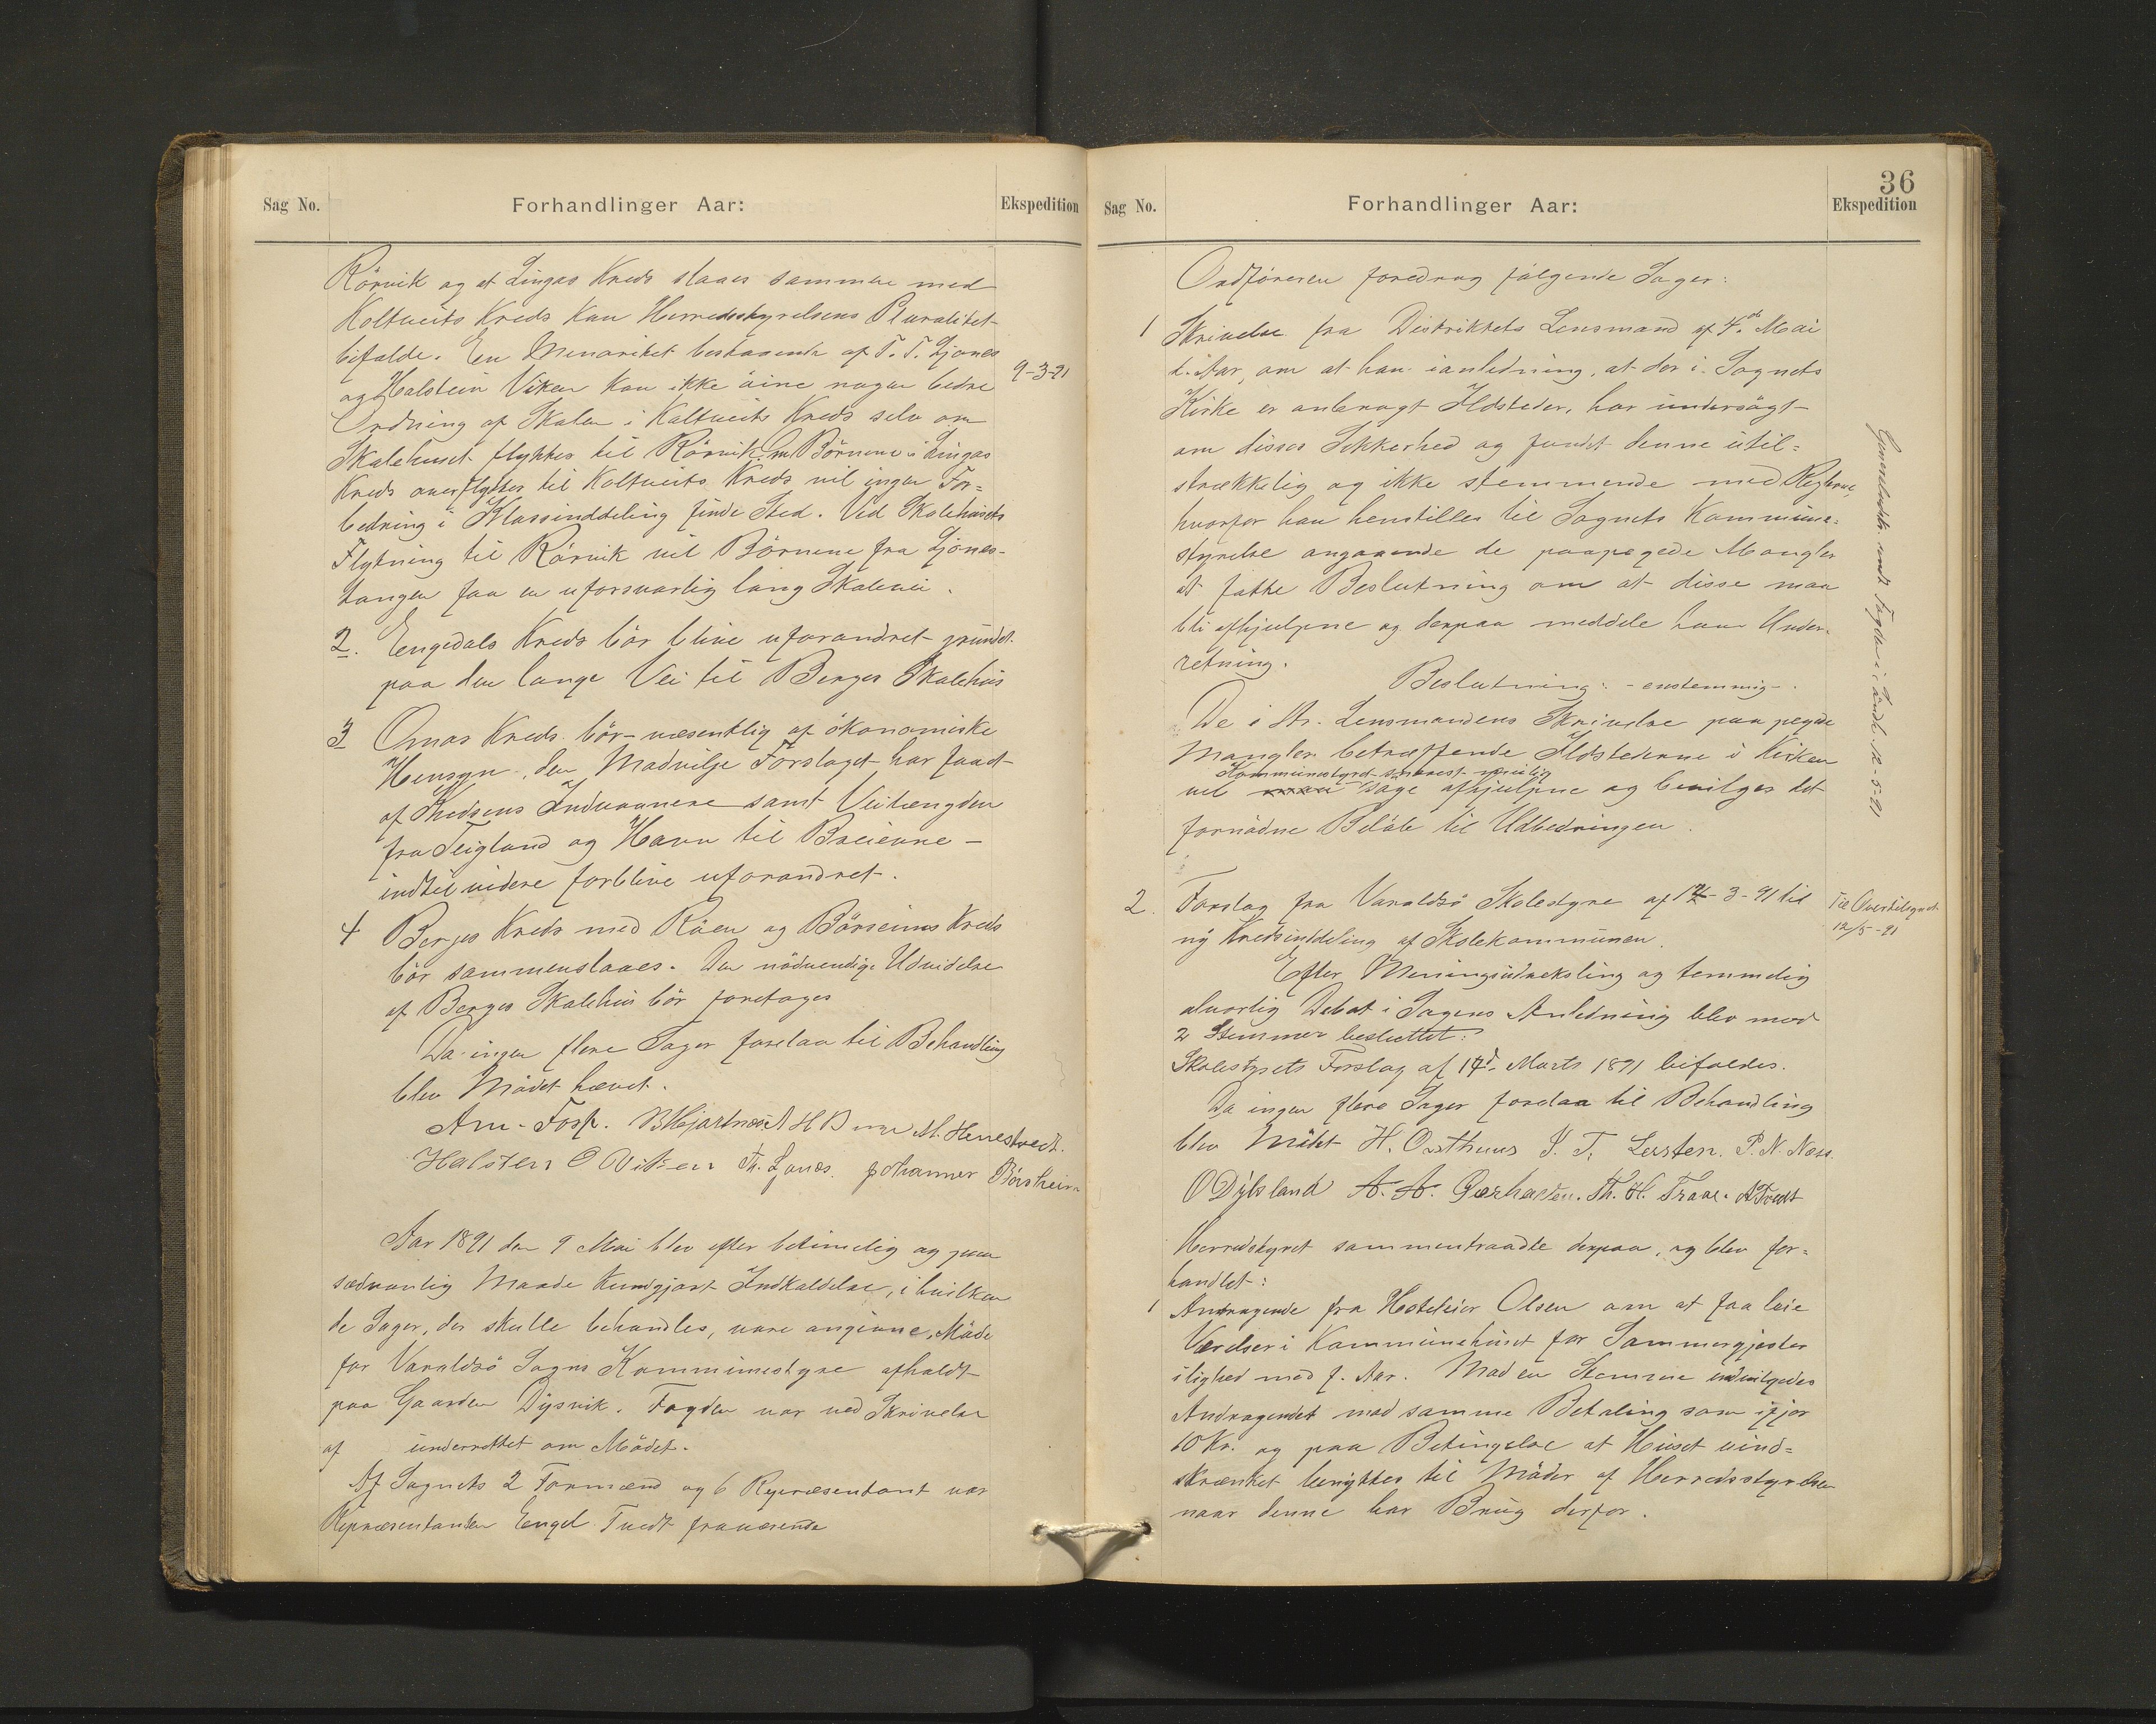 Sag No.
Forhandlinger Aar:
Ekspedition
Rörvik og at Lingas Kreds slaaes sammen med
Koltveits Kreds kan Herredsstyrelsens Pluralitet
bifalde. En Menoritet bestaaende af T. T. Ljones
og Halstein Viken kan ikke öine nogen bedre
9-3-91
Ordning af Skolen i Koltveits Kreds selv om
Skolehuset flyttes til Rörvik. Om Börnene i Lingas
Kreds overflyttes til Koltveits Kreds vil ingen For=
bedring i Klasseinddeling finde Sted. Ved Skolehusets
Flytning til Rörvik vil Börnene fra Ljones-
tangen faa en uforsvarlig lang Skolevei.
2. Engedals Kreds bör blive uforandret grundet
paa den lange Vei til Berges Skolehus
3 Omas Kreds bör - væsentlig af ökonomiske
Hensyn, den Modvilje Forslaget har faaet
af Kredsens Indvaanere samt Veilængden
fra Teigland og Havn til Breierne -
indtil videre forblive uforandret.
4 Berges Kreds med Röen og Börseims Kreds
bör sammenslaaes. Den nödvendige Udvidelse
af Berges Skolehus bör foretages
Da ingen flere Sager forelaa til Behandling
blev Mödet hævet.
Am. Fosse. B Hjartnes A H Berge M. Hennestvedt.
Halsten O Viken Th. Ljones. Johannes Börsheim
Aar 1891 den 9 Mai blev efter betimelig og paa
sædvanlig Maade kundgjort Indkaldelse, i hvilken
de Sager, der skulle behandles, vare angivne, Möde
for Varaldsö Sogns Kommunestyre afholdt
paa Gaarden Dysvik. Fogden var ved Skrivelse
af underrettet om Mödet.
Af Sognets 2 Formænd og 6 Repræsentant var
Repræsentanten Engel Tvedt fraværende
36
Sag No.
Forhandlinger Aar:
Ekspedition
Ordföreren foredrog fölgende Sager:
1 Skrivelse fra Distriktets Lensmand af 4.de Mai
d. Aar, om at han i anledning, at der i Sognets
Kirke er anbragt Ildsteder, har undersögt
om disses Sikkerhed og fundet denne util=
strækkelig og ikke stemmende med Reglerne,
hvorfor han henstilles til Sognets Kommune=
styrelse angaaende de paapegede Mangler
at fatte Beslutning om at disse maa
bli afhjulpne og derpaa meddele ham Under=
retning.
Beslutning: - enstemmig -.
De i Hr. Lensmandens Skrivelse paa pegede
Mangler betræffende Ildstederne i Kirken
Kommunestyret snarest mulig
vil söge afhjulpne og bevilges det
fornödne Belöb til Udbedringen.
Fogden i 12-5-91
2. Forslag fra Varaldsö Skolestyre af 14-3-91 til
ny Kredsinddeling af Skolekommunen.
12/5-91
Efter Meningsudveksling og temmelig
alvorlig Debat i Sagens Anledning blev mod
2 Stemmer besluttet:
Skolestyrets Forslag af 14d Marts 1891 bifaldes.
Da ingen flere Sager forelaa til Behandling
blev Mödet H. Oasthuus J. T. Lersten. P. N. Næss.
O Dybsland A. A. Gjerhaven. Th. H. Traae. A Tvedt
Herredstyret sammentraadte derpaa, og blev for=
handlet:
1 Andragende fra Hoteleier Olsen om at faa leie
Værelser i Kommunehuset for Sommergjester
i lighed med f. Aar. Mod en Stemme indvilgedes
Andragendet mod samme Betaling som ifjor
10 Kr. og paa Betingelse at Huset uind=
skrænket benyttes til Möder af Herredsstyrelsen
naar denne har Brug derfor.